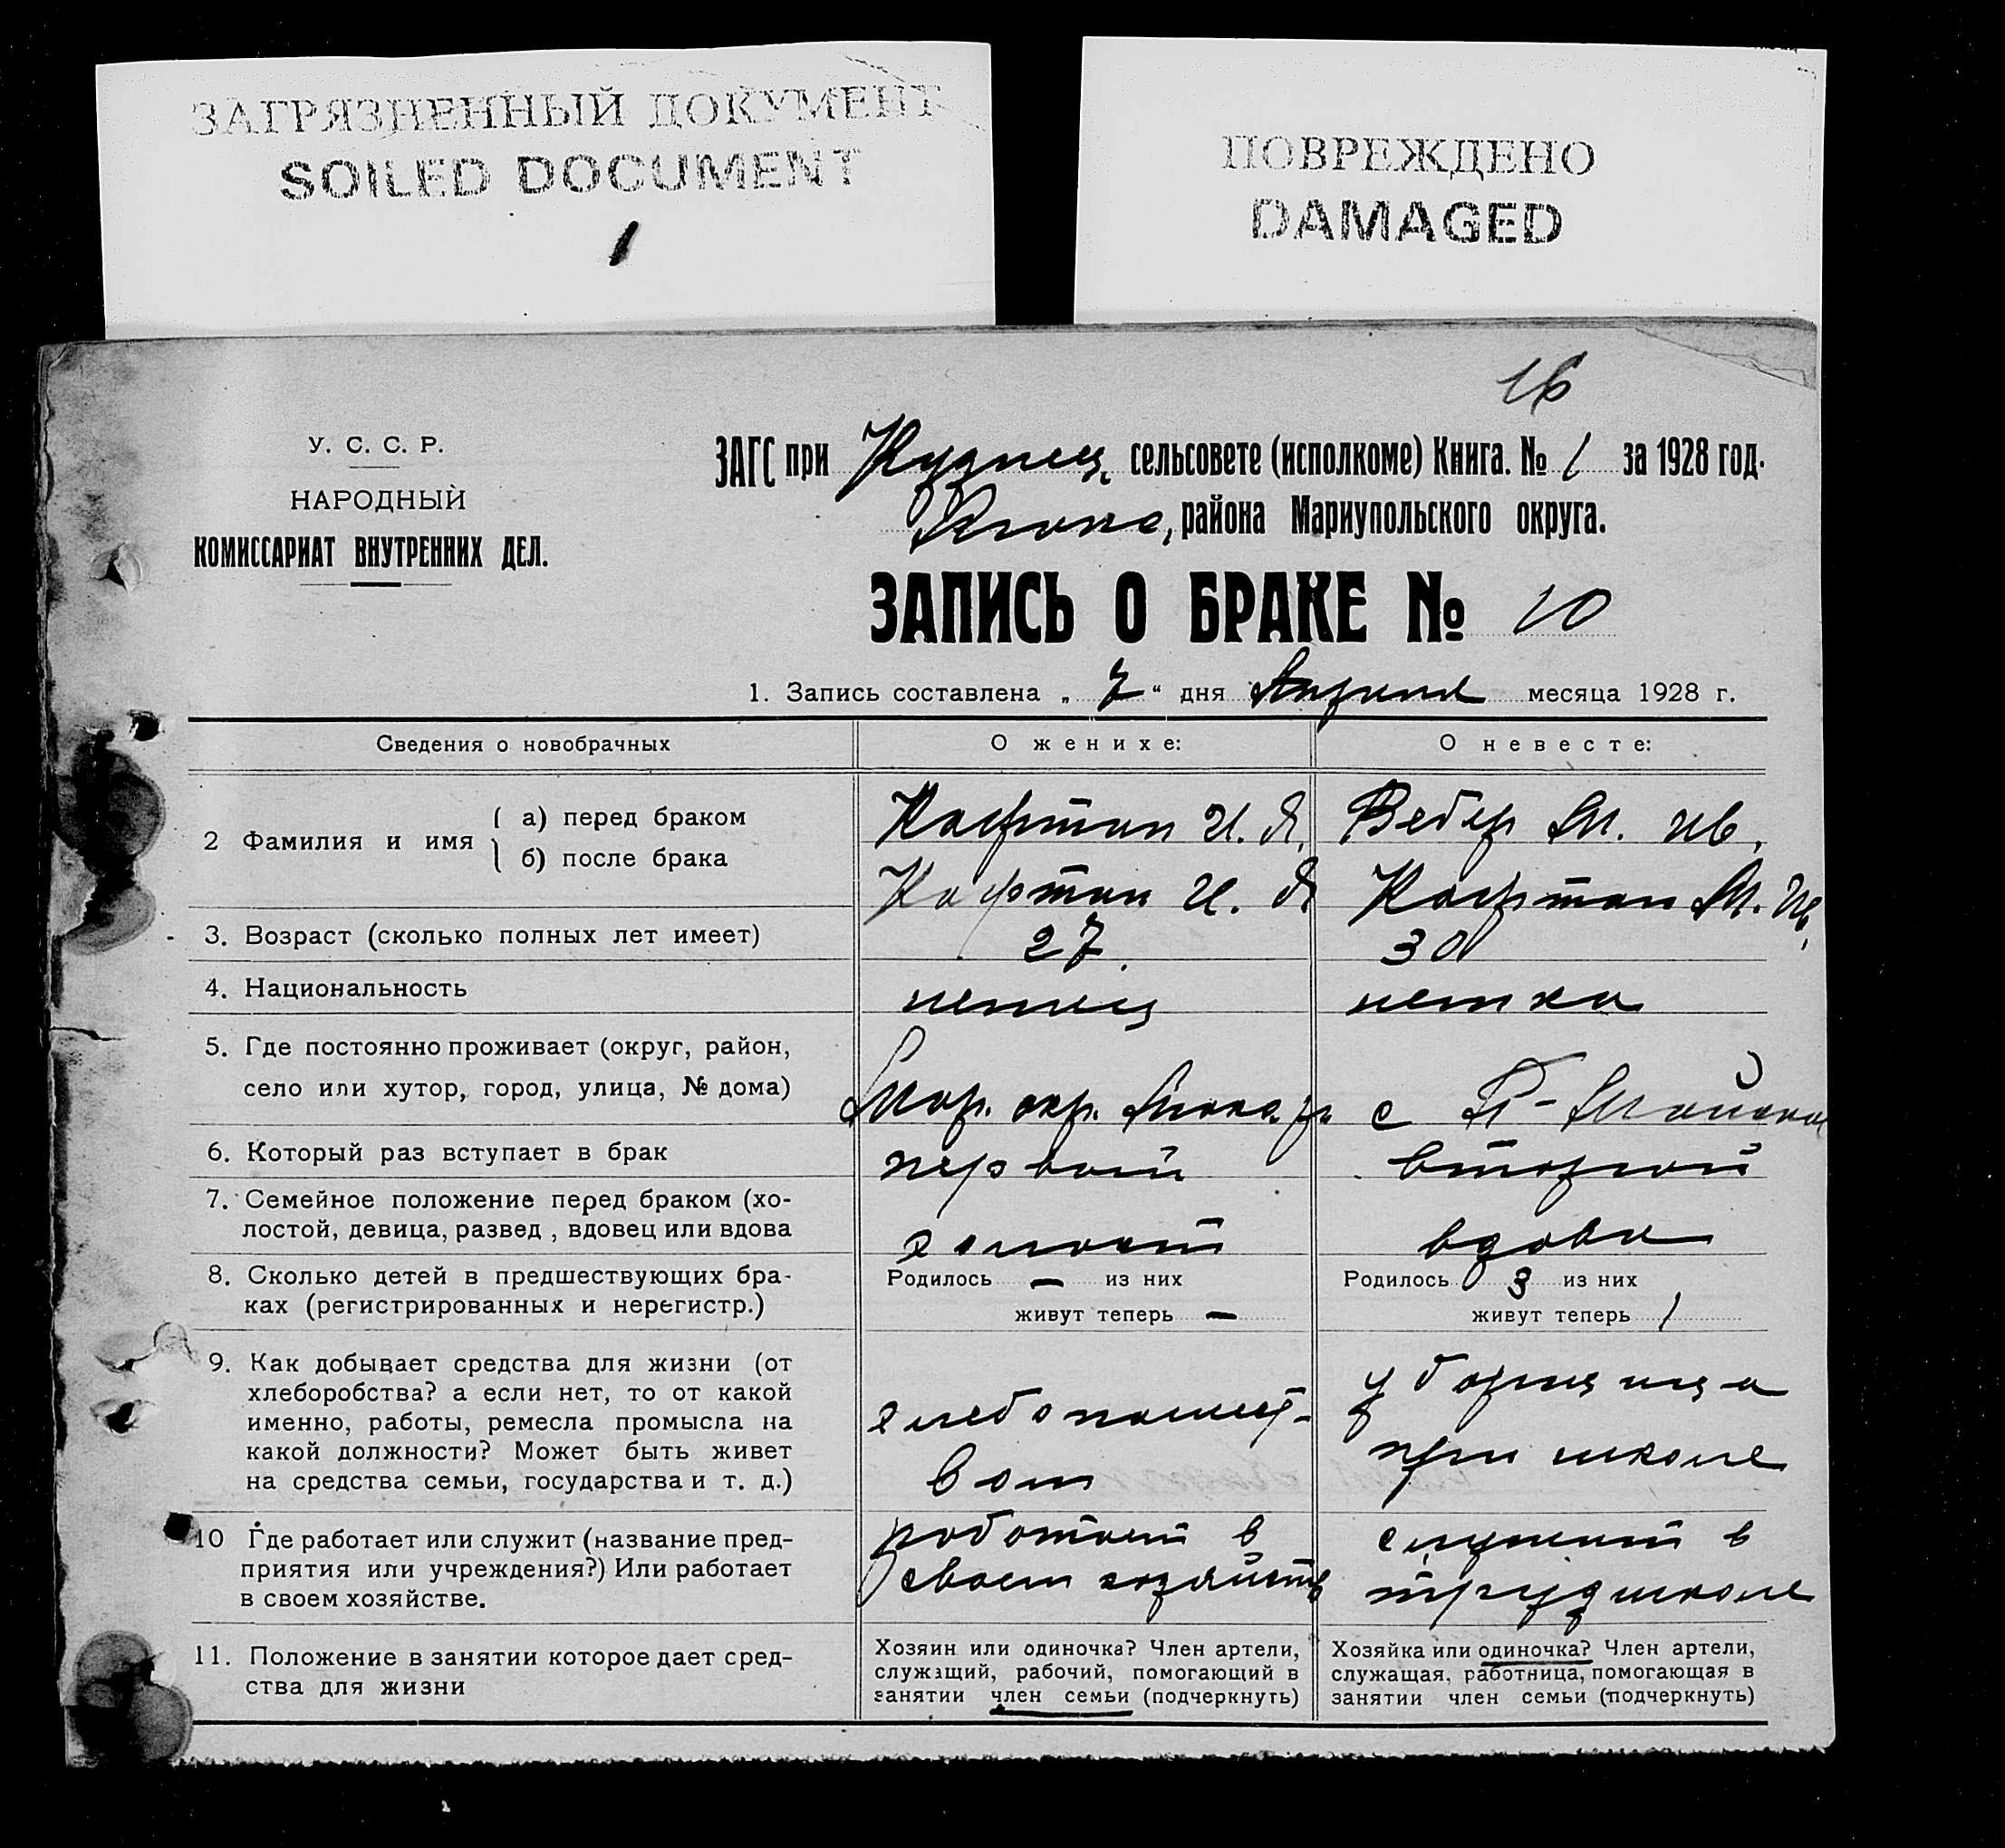 ЗАГРЯЗНЕННЫЙ ДОКУМЕНТ
SOILED DOCUMENT
1
ПОВРЕЖДЕНО
DAMAGED
16
У. С. С. Р.
НАРОДНЫЙ
КОМИССАРИАТ ВНУТРЕННИХ ДЕЛ.
ЗАГС при Кузнец. сельсовете (исполкоме) Книга. № 1 за 1928 год.
района Мариупольского округа.
ЗАПИСЬ О БРАКЕ № 10
1. Запись составлена „ 7 “ дня Апреля месяца 1928 г.
Сведения о новобрачных
О женихе:
О невесте:
2 Фамилия и имя
а) перед браком
б) после брака
Кафтан И. Я.
Вебер М. Ив.
Кафтан И. Я
Кафтан М. Ив.
3. Возраст (сколько полных лет имеет)
27.
30
4. Национальность
немец
немка
5. Где постоянно проживает (округ, район,
село или хутор, город, улица, № дома)
Мар. окр.
с
6. Который раз вступает в брак
первый
второй
7. Семейное положение перед браком (хо-
лостой, девица, развед , вдовец или вдова
холост
вдова
8. Сколько детей в предшествующих бра-
ках (регистрированных и нерегистр.)
Родилось — из них
живут теперь —
Родилось 3 из них
живут теперь 1
9. Как добывает средства для жизни (от
хлеборобства? а если нет, то от какой
именно, работы, ремесла промысла на
какой должности? Может быть живет
на средства семьи, государства и т. д.)
хлебопашест-
вом
уборщица
при школе
10 Где работает или служит (название пред-
приятия или учреждения?) Или работает
в своем хозяйстве.
работает в
своем хозяйств
служит в
трудшколе
11. Положение в занятии которое дает сред-
ства для жизни
Хозяин или одиночка? Член артели,
служащий, рабочий, помогающий в
занятии член семьи (подчеркнуть)
Хозяйка или одиночка? Член артели,
служащая, работница, помогающая в
занятии член семьи (подчеркнуть)